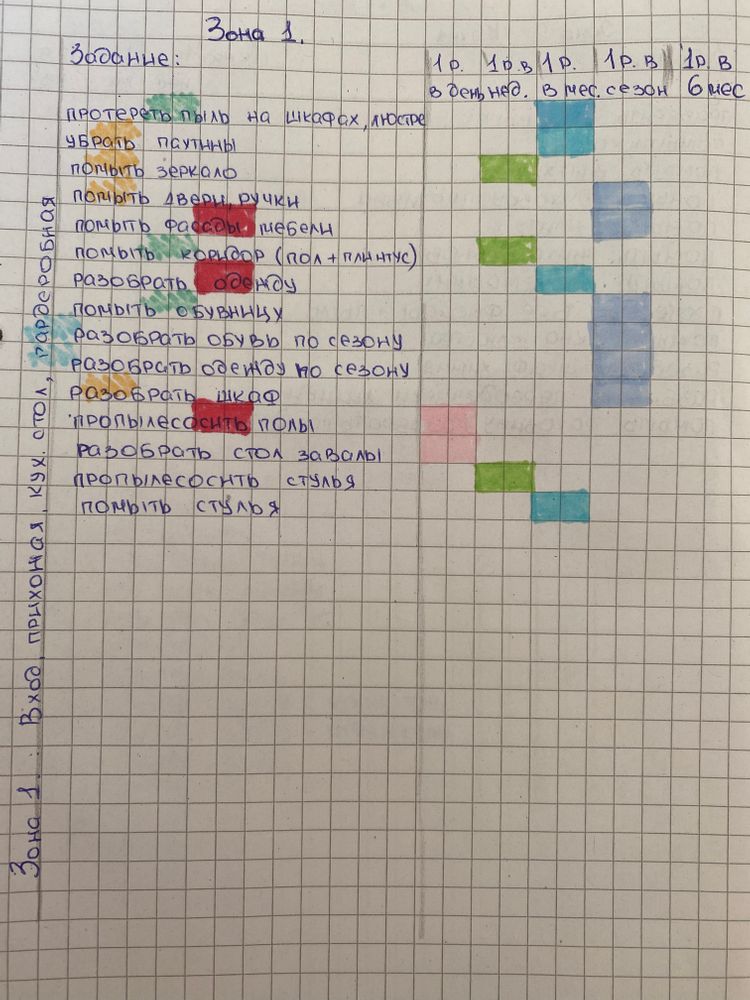 Зона 1.
Задание:
1р. в день
1р.в нед.
1р. в мес.
1р. в сезон
1р. в 6 мес
протереть пыль на шкафах, люстре
убрать паутины
помыть зеркало
помыть двери, ручки
помыть фасады мебели
помыть коридор (пол + плинтус)
разобрать одежду
помыть обувницу
разобрать обувь по сезону
разобрать одежду по сезону
разобрать шкаф
пропылесосить полы
разобрать стол завалы
пропылесосить стулья
помыть стулья
Зона 1. : Вход, прихожая, кух. стол, гардеробная